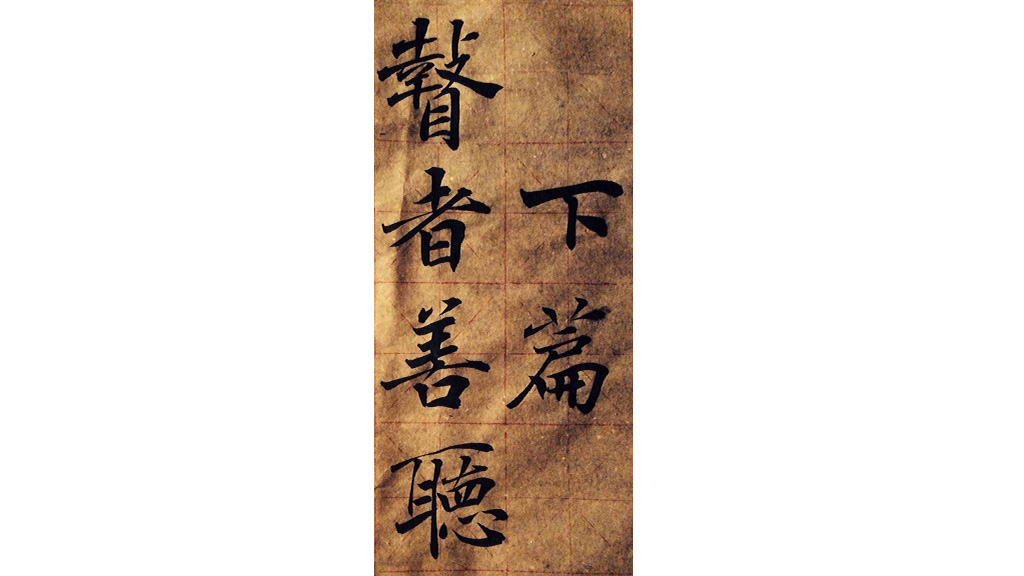 下篇
瞽者善聽